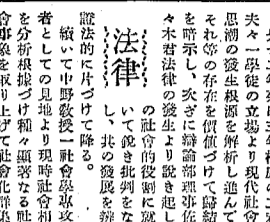 夫々一學徒の立場より現代社會
思潮の發生根源を解析し進んで
それ等の存在を價値づけて歸結
を暗示し、次ぎに辯論部理事佐
々木君法律の發生より說き起し
法律
の社會的役割に就
いて銳き批判をな
し、共の發展を辯
證法的に片づけて降る。
續いて中野敎授一社會學專攻
者としての見地より現時社會相
を分析根據づけ種々顯著なる社
會事象を取り上げて社會化群集